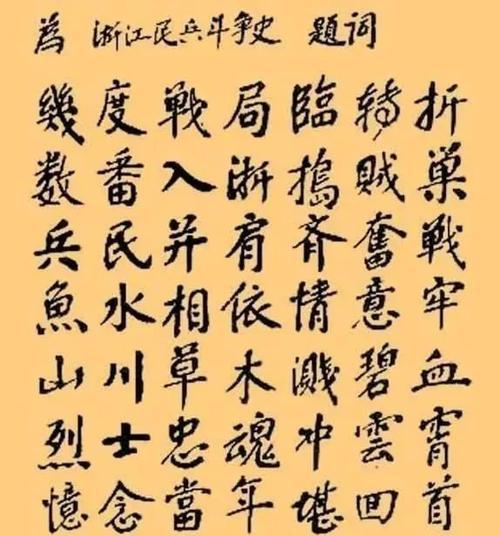 為 浙江民兵斗争史 题词
幾度戦局臨轉折
数番入浙搗賊巢
兵民并肩斉奮戦
魚水相依情意牢
山川草木濺碧血
烈士忠魂冲雲霄
憶念當年堪回首